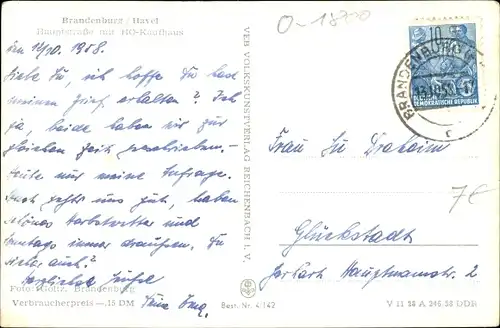 Brandenburg / Havel
Hauptstraße mit HO-Kaufhaus
den 12/10. 1958.
Liebe Du, ich hoffe Du hast
meinen Brief erhalten? Ich
ja, beide haben wir zur
gleichen Zeit geschrieben.-
Heute nur meine Anfrage.
Auch geht's uns gut, haben
schönes Herbstwetter und
Sonntags immer draußen. Du
sicher auch?
Herzliche Grüße
Deine
Foto: Gloltz, Brandenburg
Verbraucherpreis —.15 DM
Best.-Nr. 4/142
VEB VOLKSKUNSTVERLAG REICHENBACH I. V.
0-1800
10
BRANDENBURG
DEUTSCHE
DEMOKRATISCHE REPUBLIK
Frau
Glückstadt
Hauptmannstr. 2
7€
V 11 28 A 346/58 DDR